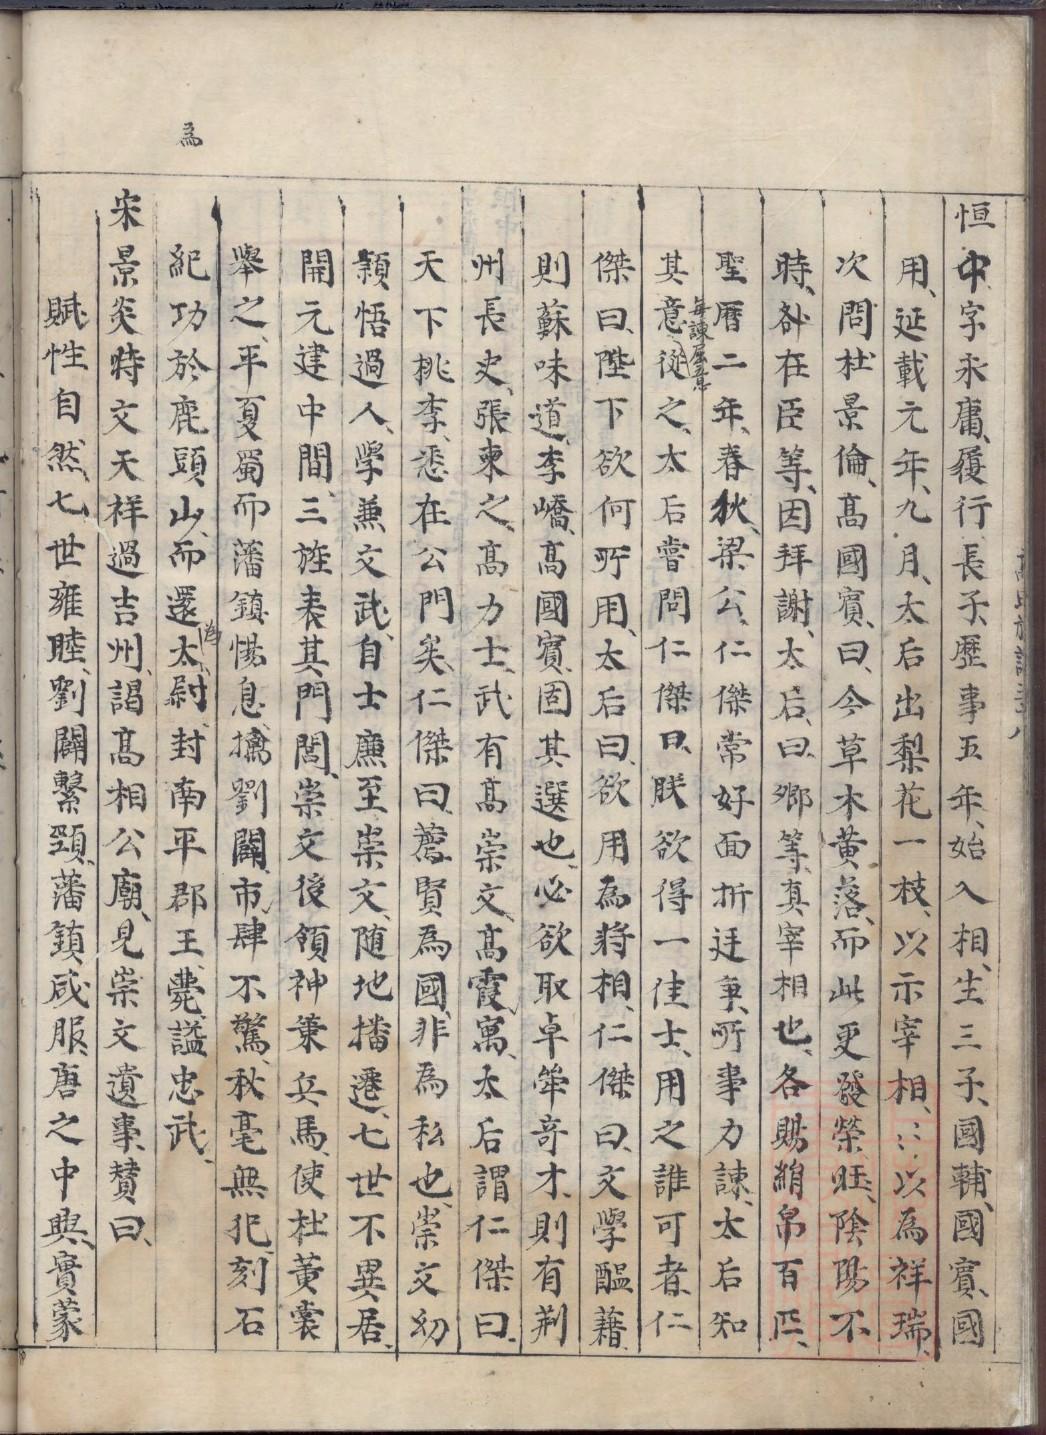 恒中字永庸、履行長子歷事五年、始入相、生三子、國輔、國賓、國
用、延載元年、九月、太后出梨花一枝、以示宰相、：：以為祥瑞、
次問杜景倫、髙國賓、曰、今草木黄落、而此更發榮旺、陰陽不
時、咎在臣等、因拜謝、太后曰、鄉等、真宰相也、各賜絹帛百匹、
聖曆二年、春狄、梁公、仁傑常好面折廷爭、所事力諫、太后知
其意從之、太后嘗問仁傑曰、朕欲得一佳士、用之誰可者、仁
每諫屈意
傑曰、陛下欲何所用、太后曰、欲用為將相、仁傑曰、文學醞藉
則蘇味道、李嶠、髙國賓、固其選也、必欲取卓犖竒才、則有荆
州長史、張柬之、髙力士、武有髙崇文、髙霞寓、太后謂仁傑曰、
天下桃李、悉在公門矣、仁傑曰、薦賢為國、非為私也、崇文幼
頴悟過人、學兼文武、自士廉至崇文、随地播遷、七世不異居、
開元建中間、三旌表其門閭、崇文後領神策兵馬、使杜黄裳
舉之、平夏蜀而藩鎮惕息、擒劉闢、市肆不驚、秋毫無犯、刻石
紀功於鹿頭山、而還太尉、封南平郡王、薨、諡忠武、
為
為
宋景炎時文天祥過吉州、謁髙相公廟、見崇文遺事、贊曰、
賦性自然、七世雍睦、劉闢繫頸、藩鎮咸服、唐之中興、實蒙